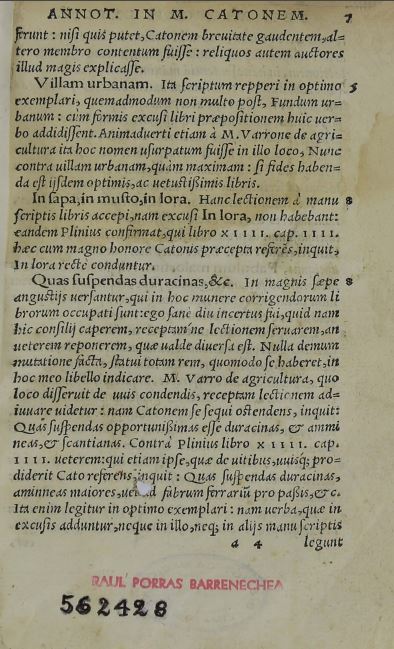 ANNOT. IN M. CATONEM. 7
ferunt: nisi quis putet, Catonem breuitate gaudentem, al-
tero membro contentum fuisse: reliquos autem auctores
illud magis explicasse.
Villam urbanam. Ita scriptum repperi in optimo 5
exemplari, quemadmodum non multo post, Fundum ur-
banum: cum formis excusi libri præpositionem huic uer-
bo addidissent. Animaduerti etiam à M. Varrone de agri-
cultura ita hoc nomen usurpatum fuisse in illo loco, Nunc
contra uillam urbanam, quàm maximam: si fides haben-
da est ijsdem optimis, ac uetustißimis libris.
In sapa, in musto, in lora. Hanc lectionem à manu 8
scriptis libris accepi, nam excusi In lora, non habebant:
eandem Plinius confirmat, qui libro XIIII. cap. IIII.
hæc cum magno honore Catonis præcepta referēs, inquit,
In lora recte conduntur.
Quas suspendas duracinas, &c. In magnis sæpe 8
angustijs uersantur, qui in hoc munere corrigendorum li
brorum occupati sunt: ego sanè diu incertus fui, quid nam
hic consilij caperem, receptam ne lectionem seruarem, an
ueterem reponerem, quæ ualde diuersa est. Nulla demum
mutatione facta, statui totam rem, quomodo se haberet, in
hoc meo libello indicare. M. Varro de agricultura, quo
loco disseruit de uuis condendis, receptam lectionem ad-
iuuare uidetur: nam Catonem se sequi ostendens, inquit:
Quas suspendas opportunißimas esse duracinas, & ammi
neas, & scantianas. Contrà Plinius libro XIIII. cap.
IIII. ueterem: qui etiam ipse, quæ de uitibus, uuisq; pro-
diderit Cato referens inquit: Quas suspendas duracinas,
aminneas maiores, uel ad fabrum ferrariū pro paßis, & c.
Ita enim legitur in optimo exemplari: nam uerba, quæ in
excusis adduntur, neque in illo, neq; in alijs manu scriptis
a 4 legunt
RAUL PORRAS BARRENECHEA
562428